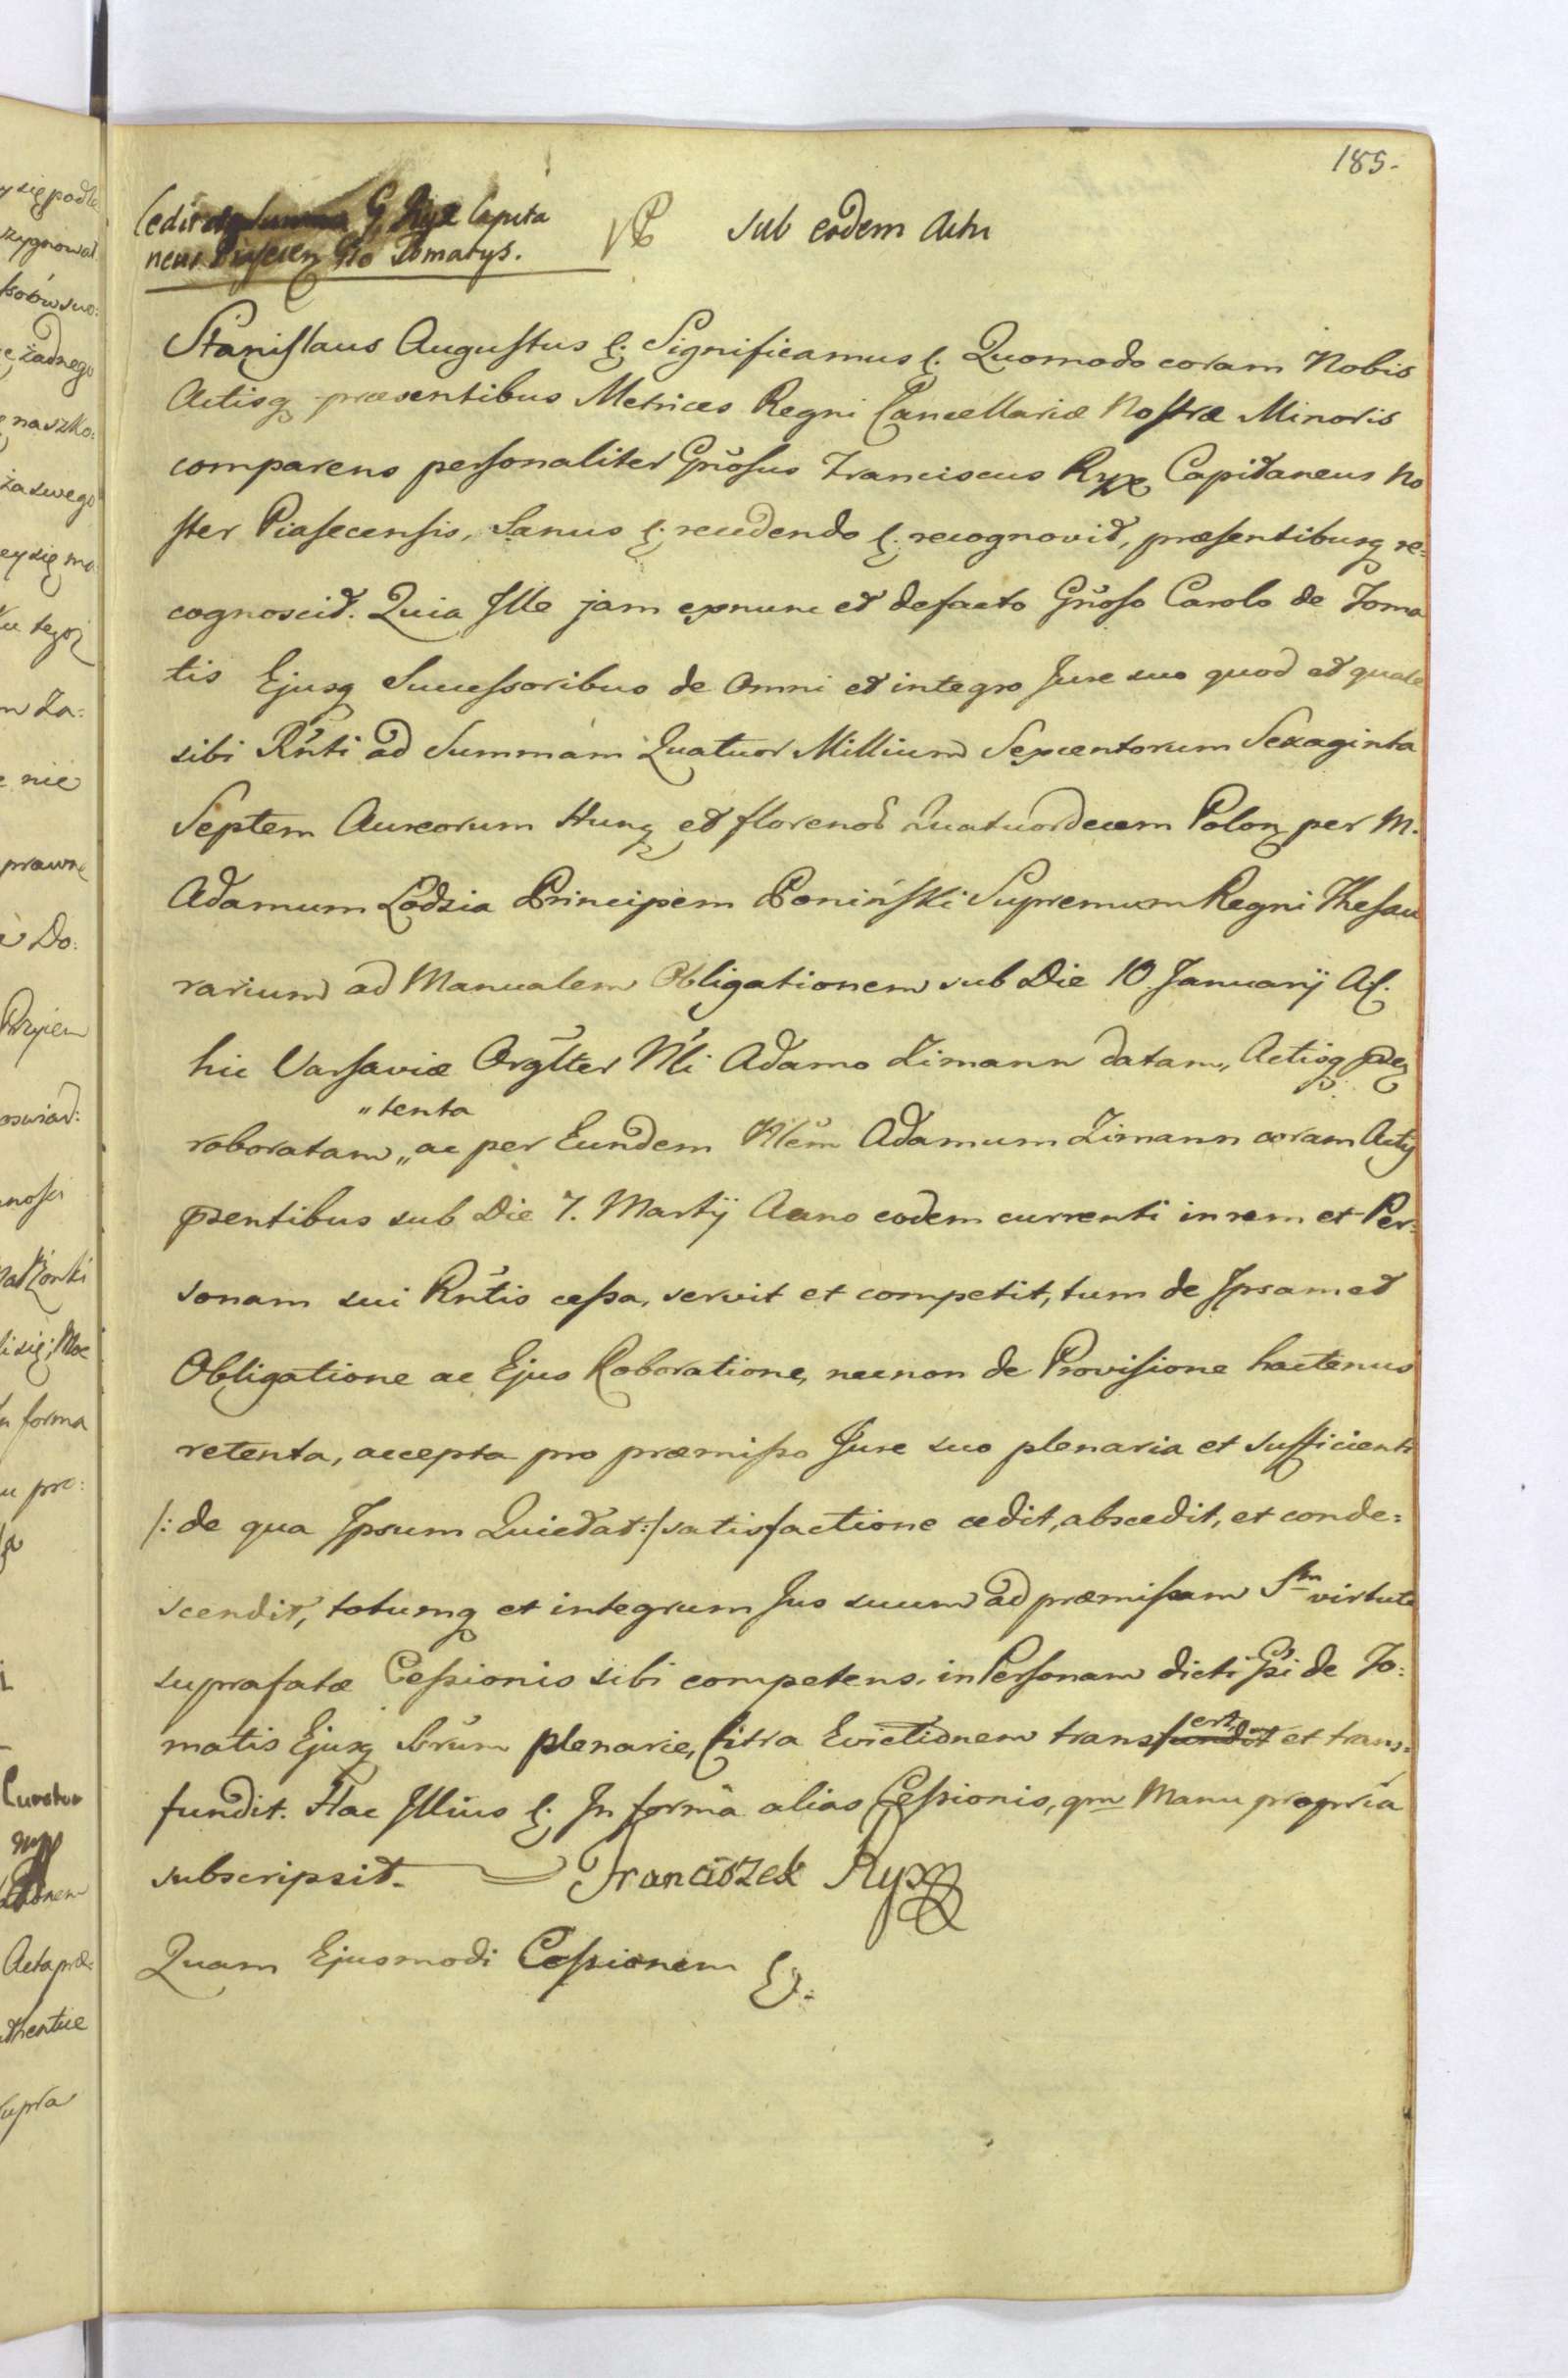 185.
Cedit G. Ryx Capita
neus Piasecen Gso Tomatys.
sub eodem Actu
Stanislaus Augustus &. Significamus &. Quomodo coram Nobis
Actisq praesentibus Metrices Regni Cancellariæ Nostræ Minoris
comparens personaliter Gnosus Franciscus Ryx Capitaneus No
ster Piasecensis, Sanus &. recedendo &. recognovit, præsentibusq re=
cognoscit. Quia Ille jam exnunc et defacto Gnoso Carolo de Toma
tis Ejusq Successoribus de Omni et integro Jure suo quod et quale
sibi Rnti ad Summam Quatuor Millium Sexcentorum Sexaginta
Septem Aureorum Hung et florenos Quatuordecem Polon per M.
Adamum Łodzia Principem Poniński Supremum Regni Thesau
rarium ad Manualem Obligationem sub Die 10 Januarij A.C.
hic Varsaviæ Orgltter Nli Adamo Zimann datam, Actisq
"tenta
roboratam,, ac per Eundem Nlem Adamum Zimann coram Actis
psentibus sub Die 7. Martij Anno eodem currenti in rem et Per=
sonam sui Rntis cessa, servit et competit, tum de Ipsamet
Obligatione ac Ejus Roboratione, necnon de Provisione hactenus
retenta, accepta pro præmisso Jure suo plenaria et sufficienti
/: de qua Ipsum Quietat :/ satisfactione cedit, abscedit, et conde=
scendit, totumq et integrum Jus suum ad præmissam Sm virtute
suprafatæ Cessionis sibi competens, in Personam dicti Gsi de To=
matis Ejusq Srum plenarie, Citra Evictionem transfert et trans=
fundit. Hac Illius &. In forma alias Cessionis, qm Manu propria
subscripsit. Franciszek Ryx
Quam Ejusmodi Cessionem &.